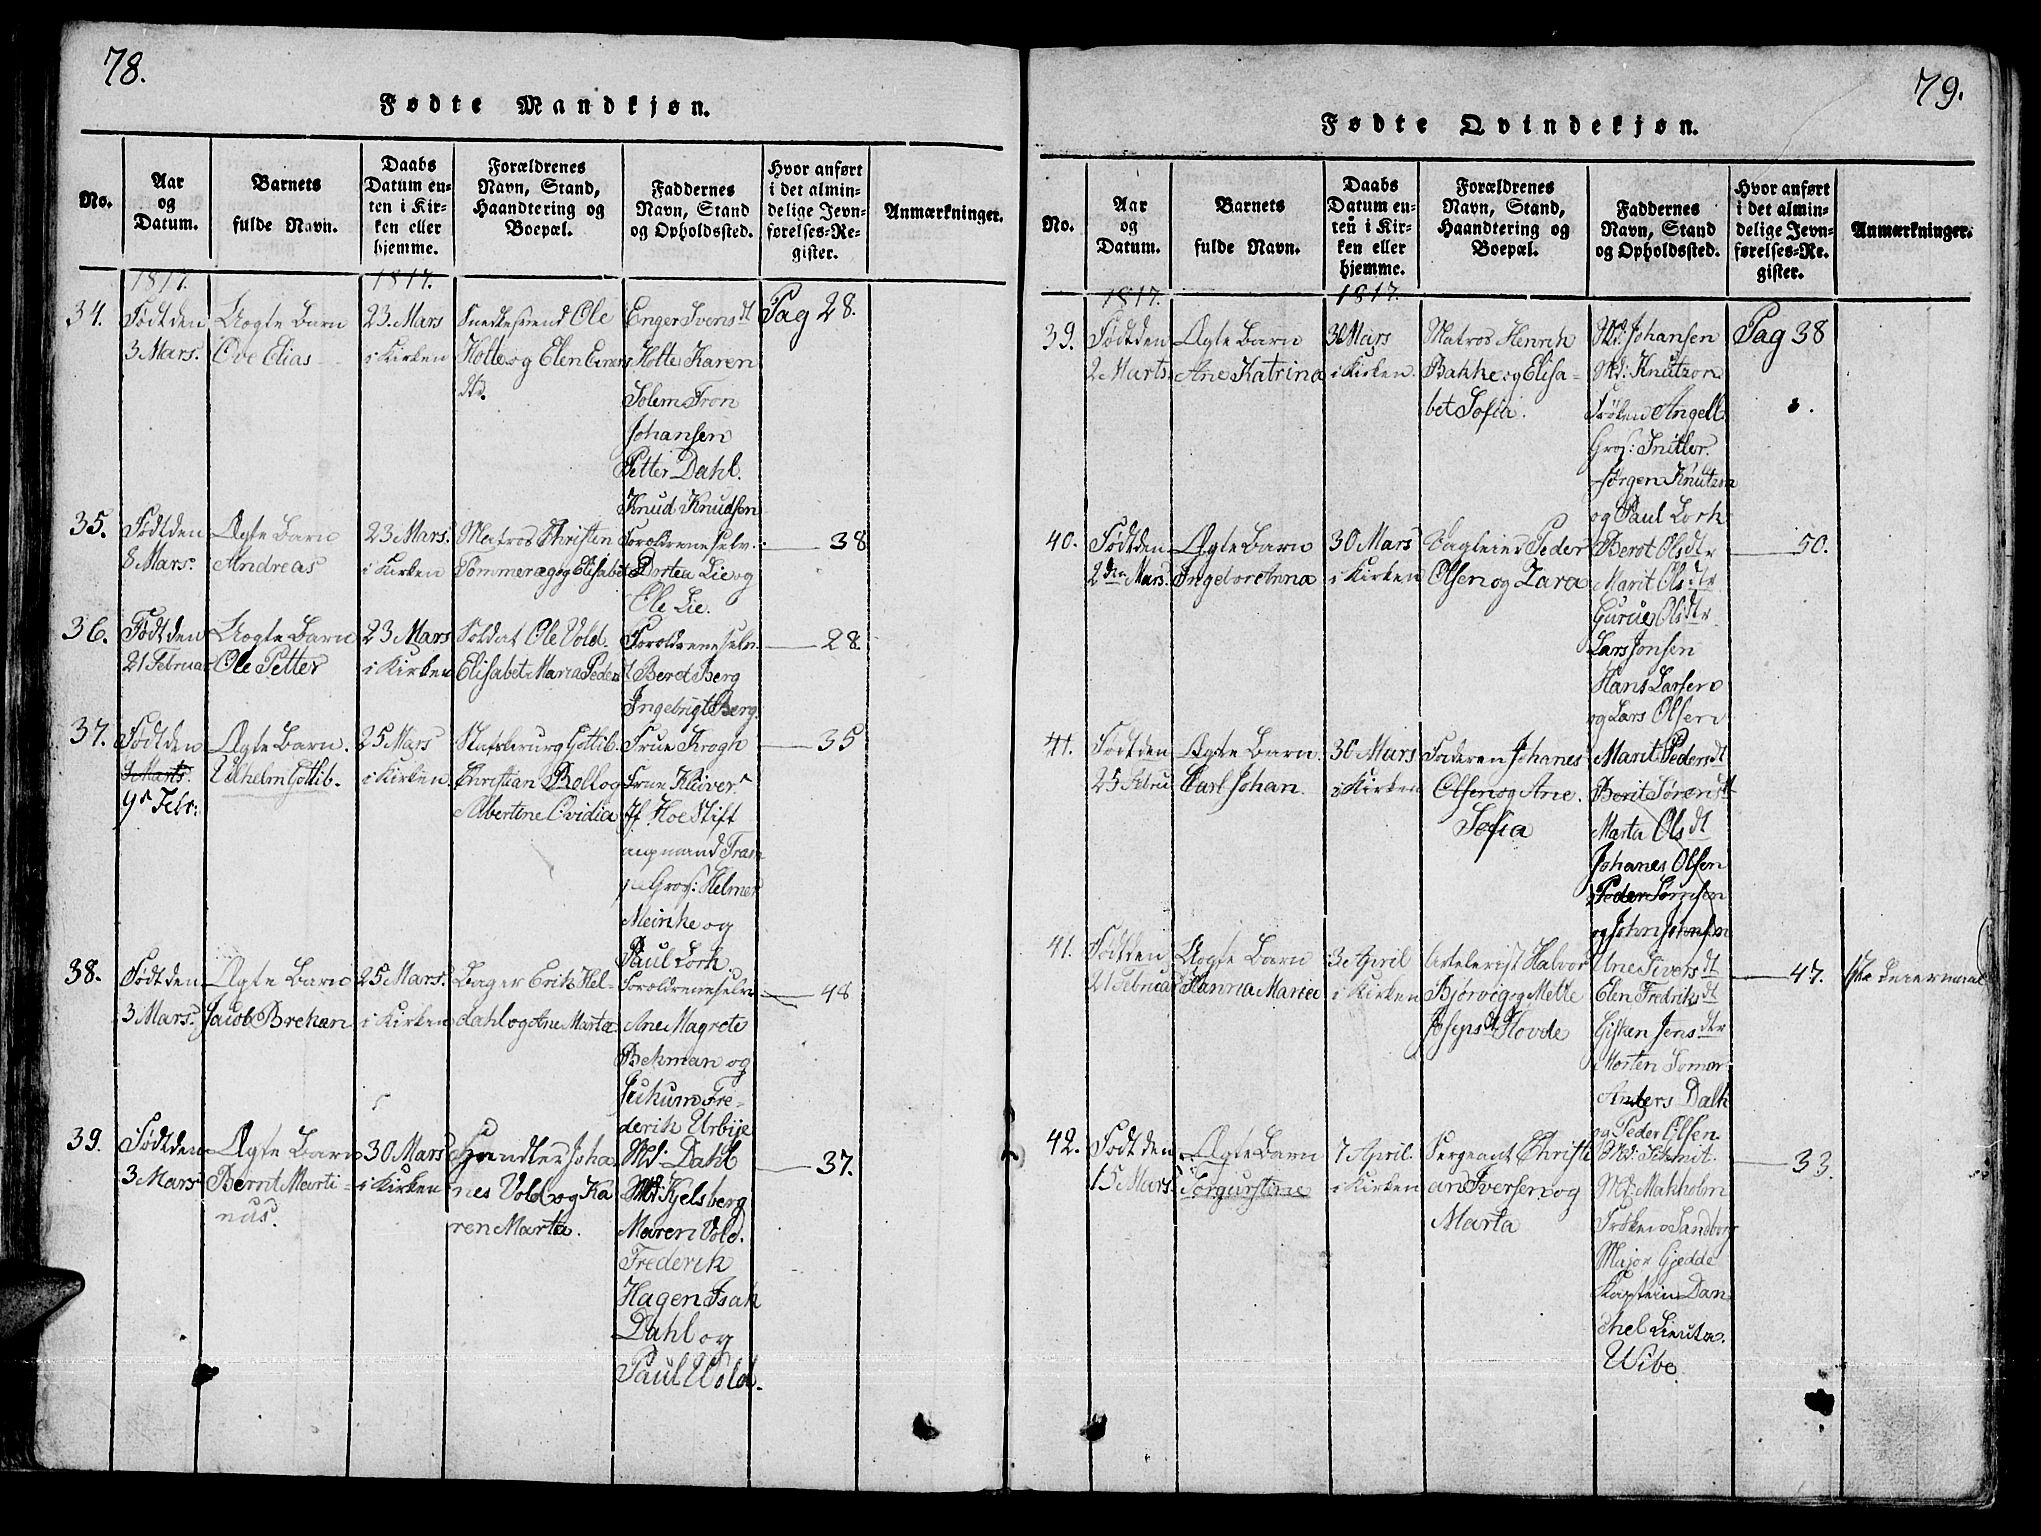 78.
Fødte Mandkjøn.
No.
Aar
og
Datum.
Barnets
fulde Navn.
Daabs
Datum en-
ten i Kir-
ken eller
hjemme.
Forældrenes
Navn, Stand,
Haandtering og
Boepæl.
Faddernes
Navn, Stand
og Opholdssted.
Hvor anført
i det almin-
delige Jevn-
førelses-Re-
gister.
Anmærkninger.
1817.
1817.
34.
Født den
3 Mars.
Uægte Barn
Ove Elias
23. Mars
i Kirken
Ole
Holte og Elen
Enger Ivens dt
Holte Karen
Solem Tron
Johansen
Petter Dahl.
Knud Knudsen
Pag 28.
35.
Født den
8 Mars.
Ægte Barn
Andreas
23 Mars.
i Kirken
Matros Christen
og Elisabet
Foroldrene selv.
Dortea Lie og
Ole Lie.
38
36.
Født den
21 Februar
Uægte Barn
Ole Petter
23 Mars
i Kirken
Soldat Ole Vold.
Elisabet Maria Peders
Foroldrene selv.
Berot Berg
Ingebrigt Berg.
28
37.
Født den
9 Marts.
9de Febr:
Ægte Barn.
Vilhelm Gotlib.
25 Mars
i Kirken
Gotlib
Christian Boll og
Albertine Ovidia
Frue Krogh
Frue Klüver
Hoe Stift
amtmand Tram
pe Gros: Helmer
Meinke og
Paul Lorh
35
38.
Født den
3 Mars.
Ægte Barn
Jacob Brekan
25 Mars.
i Kirken
Bager Erik Hel-
dahl og Ane Marta
Foroldrene selv
Ane Magrete
Bekman og
Juhum Fre-
derik Urbije
48
39.
Født den
3 Mars
Ægte Barn
Bernt Marti-
nus.
30 Mars
i Kirken
Handler Joha
nes Vold og Ka
ren Marta.
Md: Dahl
Md Kjelsberg
Maren Vold.
Frederik
Hagen Isak
Dahl og
Paul Vold.
37.
79.
Fødte Qvindekjøn.
No.
Aar
og
Datum.
Barnets
fulde Navn.
Daabs
Datum en-
ten i Kir-
ken eller
hjemme.
Forældrenes
Navn, Stand,
Haandtering og
Boepæl.
Faddernes
Navn, Stand
og Opholdssted.
Hvor anført
i det almin-
delige Jevn-
førelses-Re-
gister.
Anmærkninger.
1817.
1817.
39.
Født den
2 Marts.
Ægte Barn
Ane Katrina
30 Mars
i Kirken.
Matros Henrik
Bakke og Elisa-
bet Sofia.
Md: Johansen
Md: Knutzon
Frøken Angell
Gros: Snitler.
Jørgen Knutzon
og Paul Lorh
Pag 38
40.
Født den
2den Mars.
Ægte Barn
Ingeboranna
30 Mars
i Kirken
Peder
Olsen og Zara
Berot Olsdtr
Marit Olsdtr
Guru Olsdtr
Lars Jonsen
Hans Larsen
og Lars Olsen
50.
41.
Født den
25 Febru
Ægte Barn
Carl Johan.
30 Mars
i Kirken
Faderen Johanes
Olsen og Ane.
Sofia
Marit Pedersdt
Berit Sørensdt
Marta Olsdt
Johanes Olsen
Peder Sørnsen
og John Johnsen
41.
Født den
21 Februar
Uægte Barn
Hanna Maria
3 April
i Kirken
Halvor
Bjørvig og Mette
Josepsdt Hovde
Ane Sivers dt
Elen Fredriks dt
Gisken Jens dtr
Morten Somer
Anders Dalh
og Peder Olsen
47.
1te Leiermaal
42.
Født den
15 Mars.
Ægte Barn
Jørgurstine
7 April.
i Kirken
Sergeant Christi
an Iversen og
Marta
Md: Schmit.
Md: Makholm
Frøken Sandborg
Major Gjedde
Kaptein Dan-
chel Lieutn.
Wibe
33.